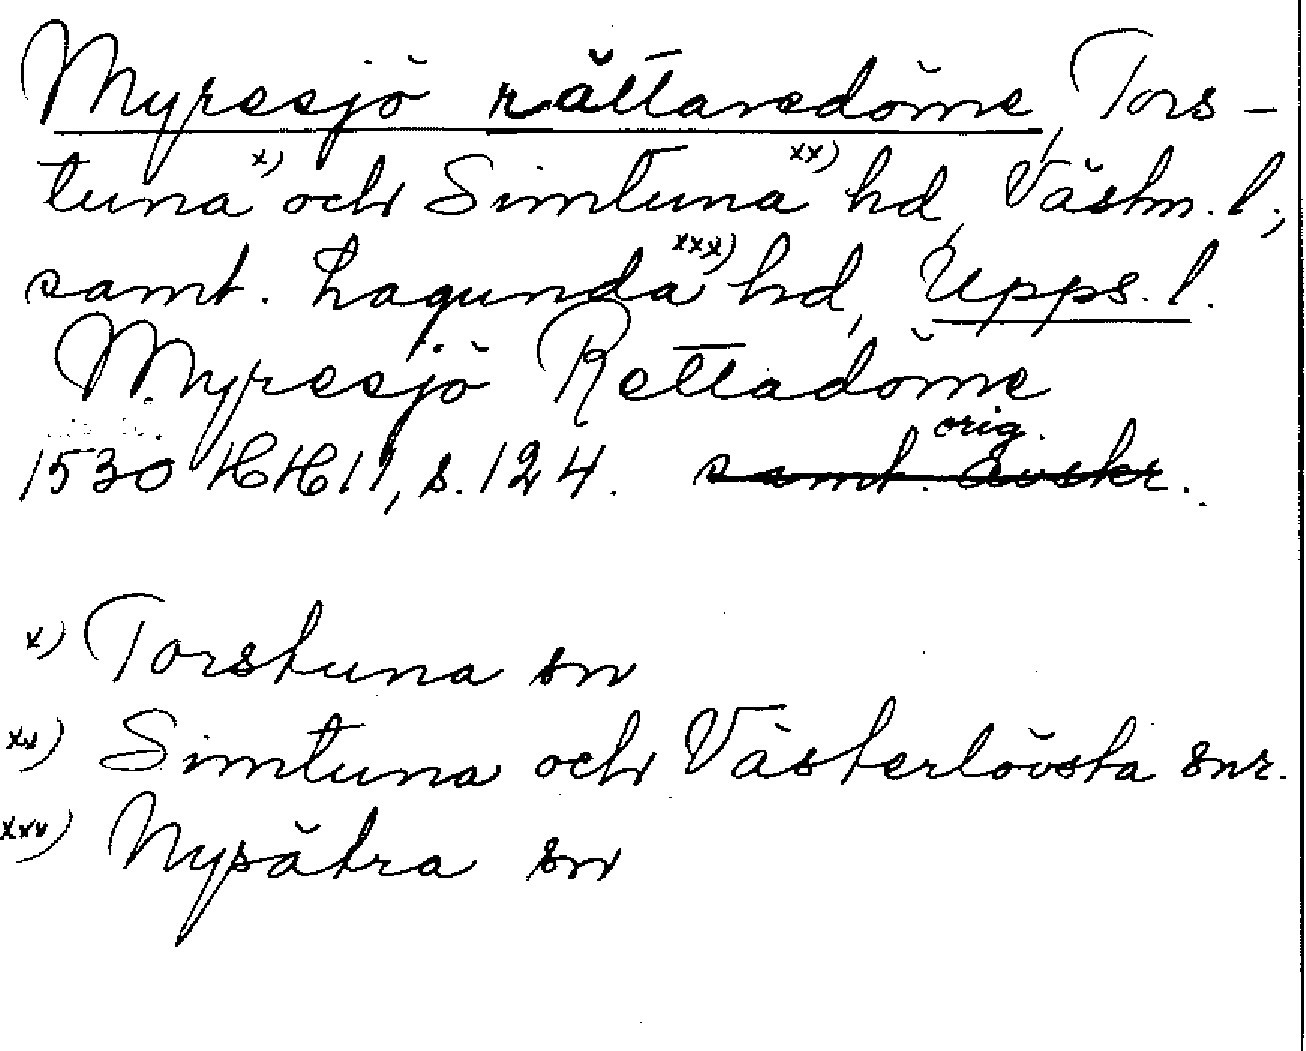 Myresjö rättaredöme, Tors-
tuna x) och Simtuna xx) hd, Västm. l.,
samt. Lagunda xxx) hd, Upps. l.
Myresjö Rettadöme
orig.
1530 HH 11, s. 124. samt. avskr.
x) Torstuna sn
xx) Simtuna och Västerlövsta snr.
xxx) Nysätra sn